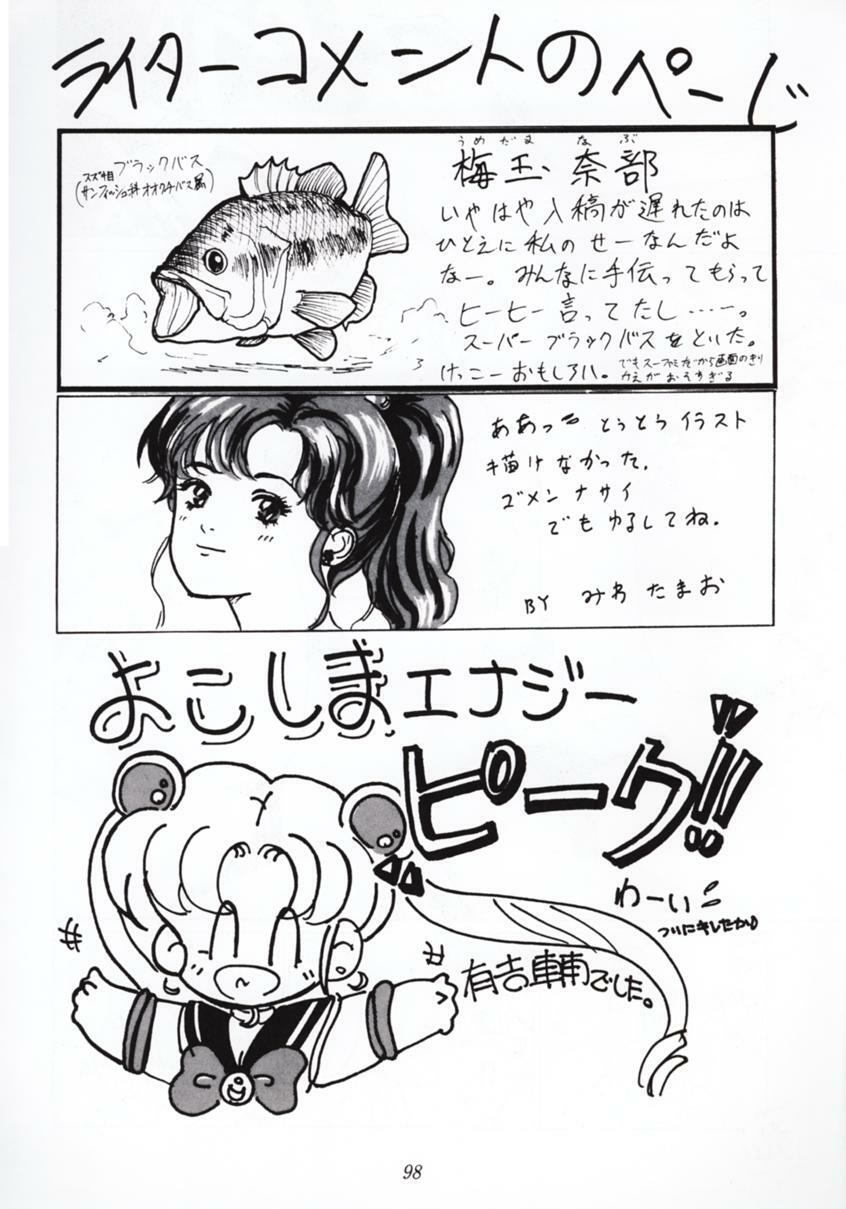 ライターコメントのページ
スズキ目 ブラックバス
(サンフィッシュ科オオクチバス属)
うめだま なぶ
梅玉 奈部
いやはや入稿が遅れたのは
ひとえに私のせーなんだよ
なー。みんなに手伝ってもらって
ヒーヒー言ってたし・・・・ー。
スーパーブラックバスをといた。
けっこーおもしろい。
でもスーファミだから画面のきり
かえがおそすぎる
ああっ とうとうイラスト
描けなかった。
ゴメンナサイ
でもゆるしてね。
BY みわ たまお
よこしまエナジー
ピーク!!
わーい
ついにキレたか
有吉 でした。
98